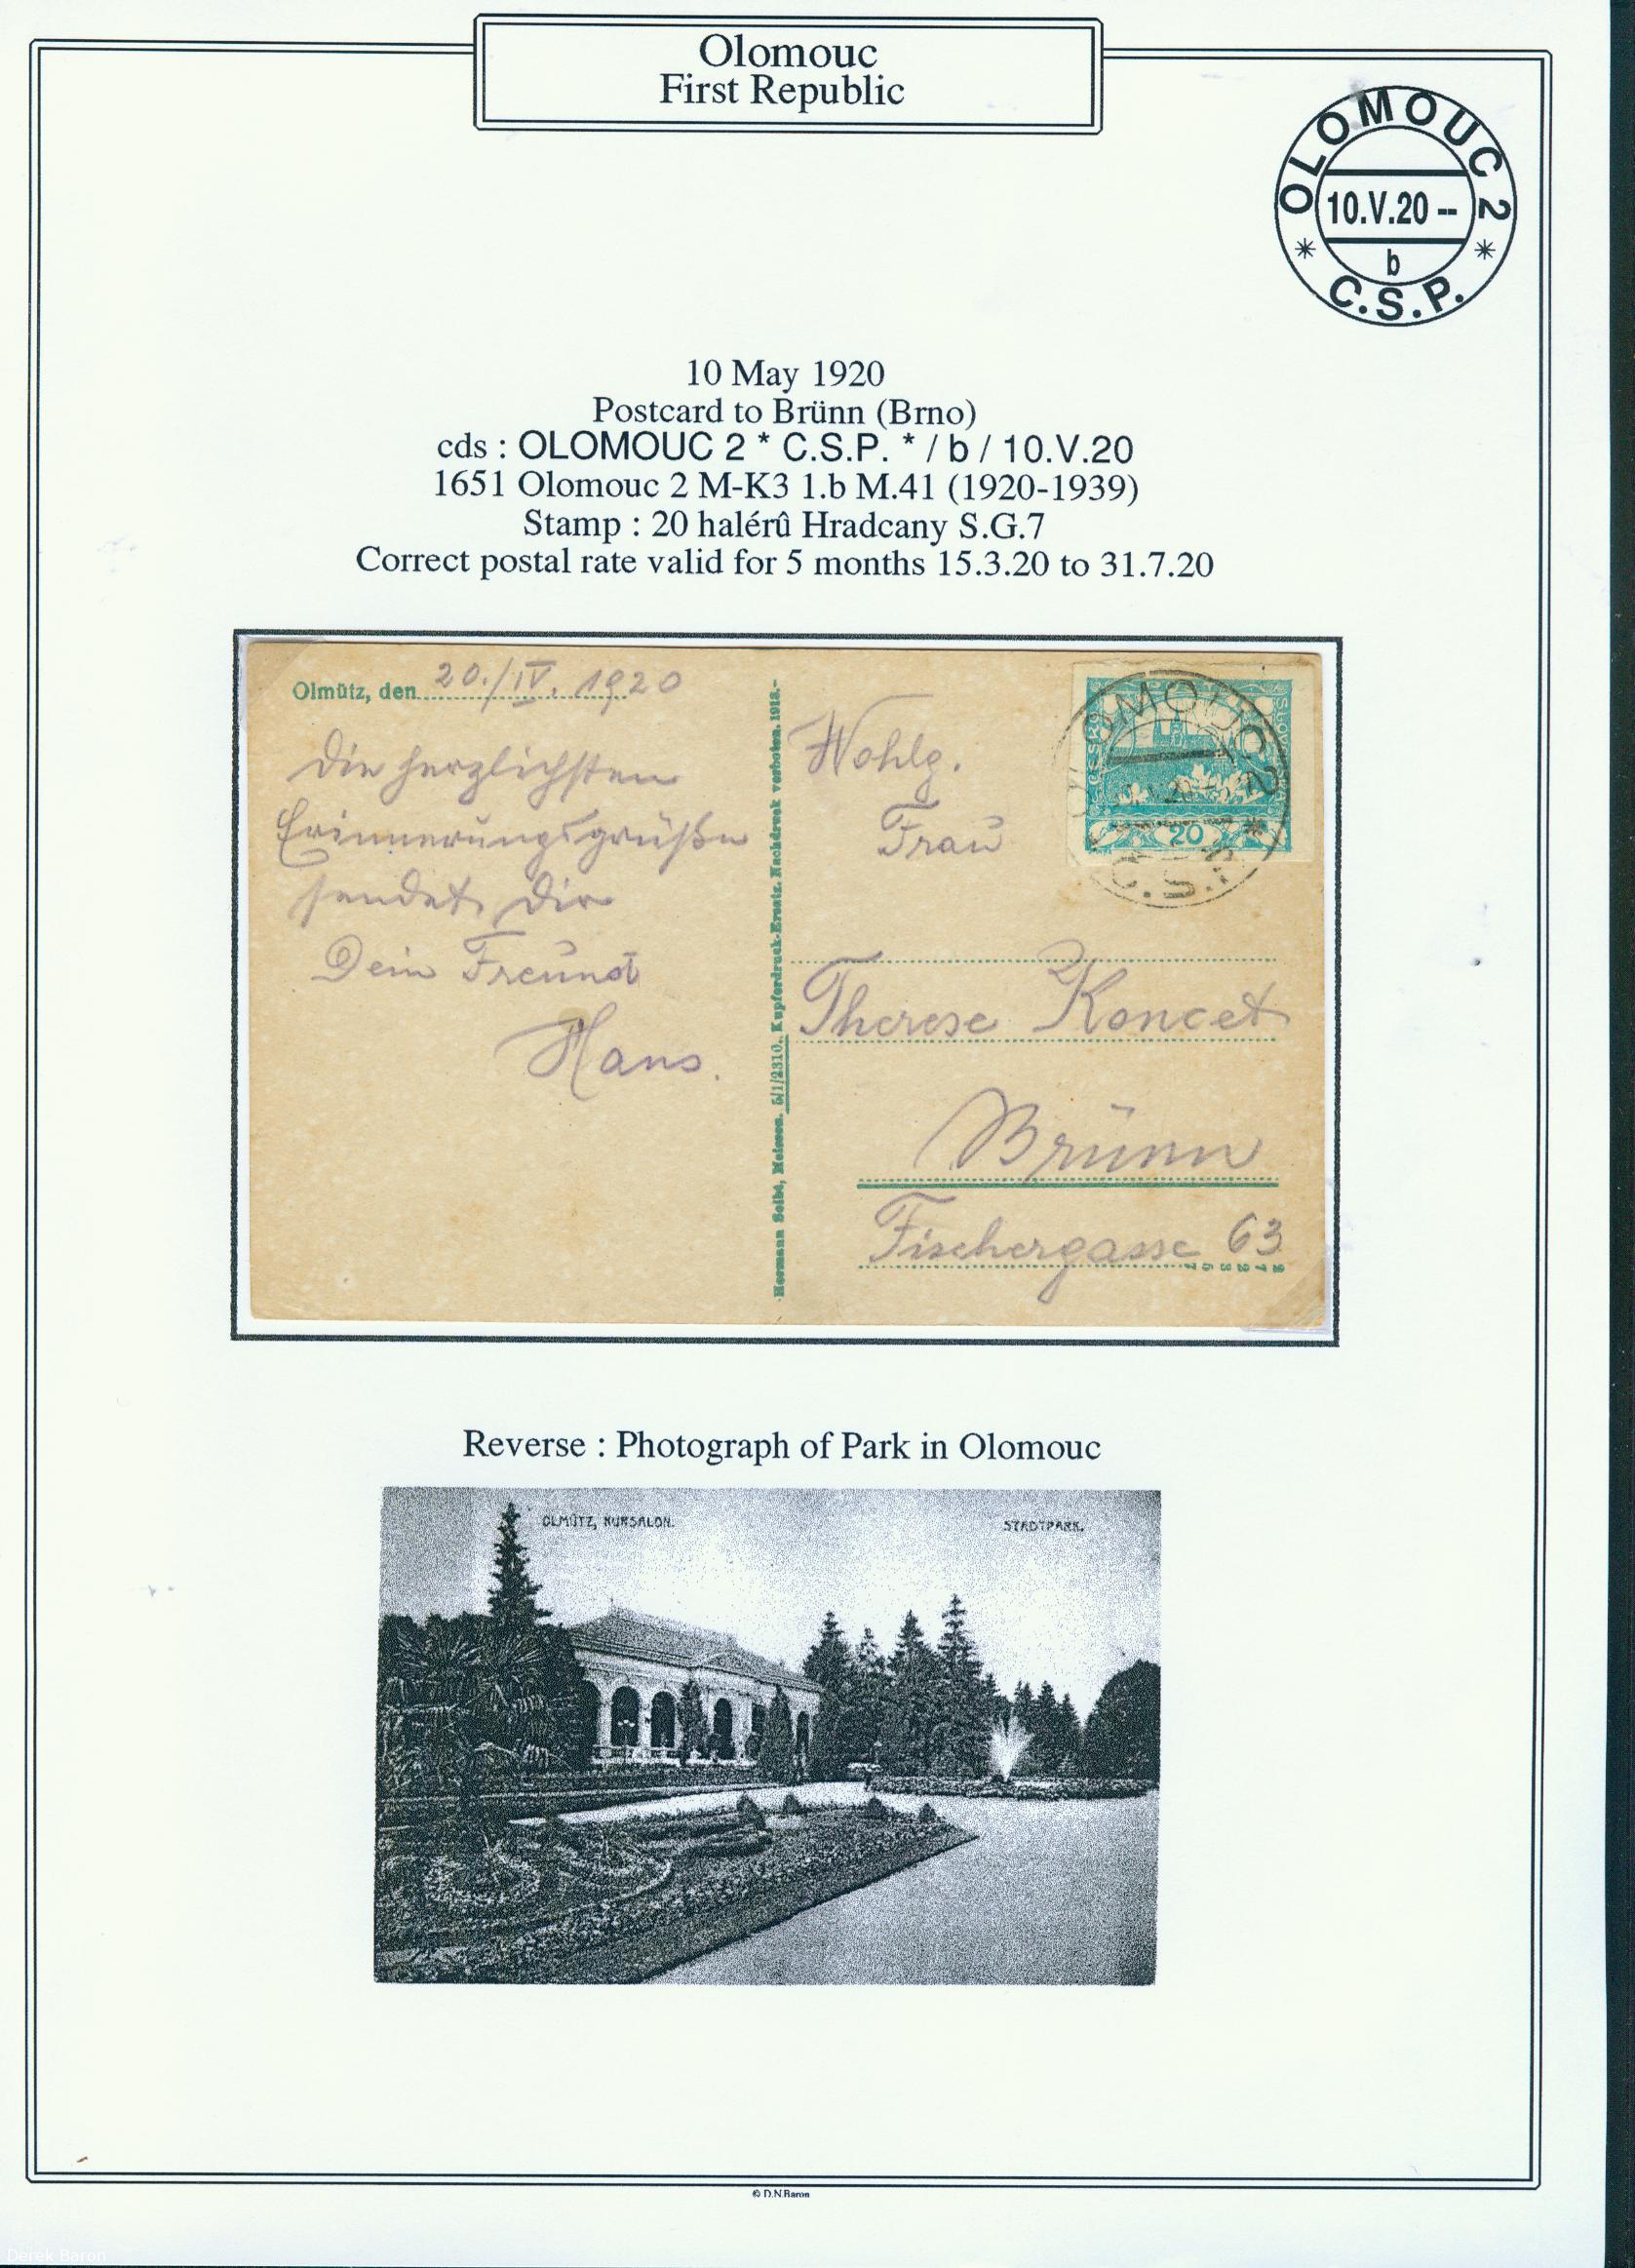 Olomouc
First Republic
OLOMOUC 2
10.V.20 --
b
* C.S.P. *
10 May 1920
Postcard to Brünn (Brno)
cds : OLOMOUC 2 * C.S.P. * / b / 10.V.20
1651 Olomouc 2 M-K3 1.b M.41 (1920-1939)
Stamp : 20 halérû Hradcany S.G.7
Correct postal rate valid for 5 months 15.3.20 to 31.7.20
Olmütz, den 20./IV. 1920
Die herzlichsten
Erinnerungsgrüße
sendet Dir
Dein Freund
Hans.
Kupferdruck-Ersatz. Nachdruck verboten. 1918.-
Hermann Seibt, Meissen. 5/1/2310.
OLOMOUC 2
20
* C.S.P.
Wohlg.
Frau
Therese Koncet
Brünn
Fischergasse 63
Reverse : Photograph of Park in Olomouc
OLMÜTZ, KURSALON.
STADTPARK.
© D.N.Baron
Derek Baron